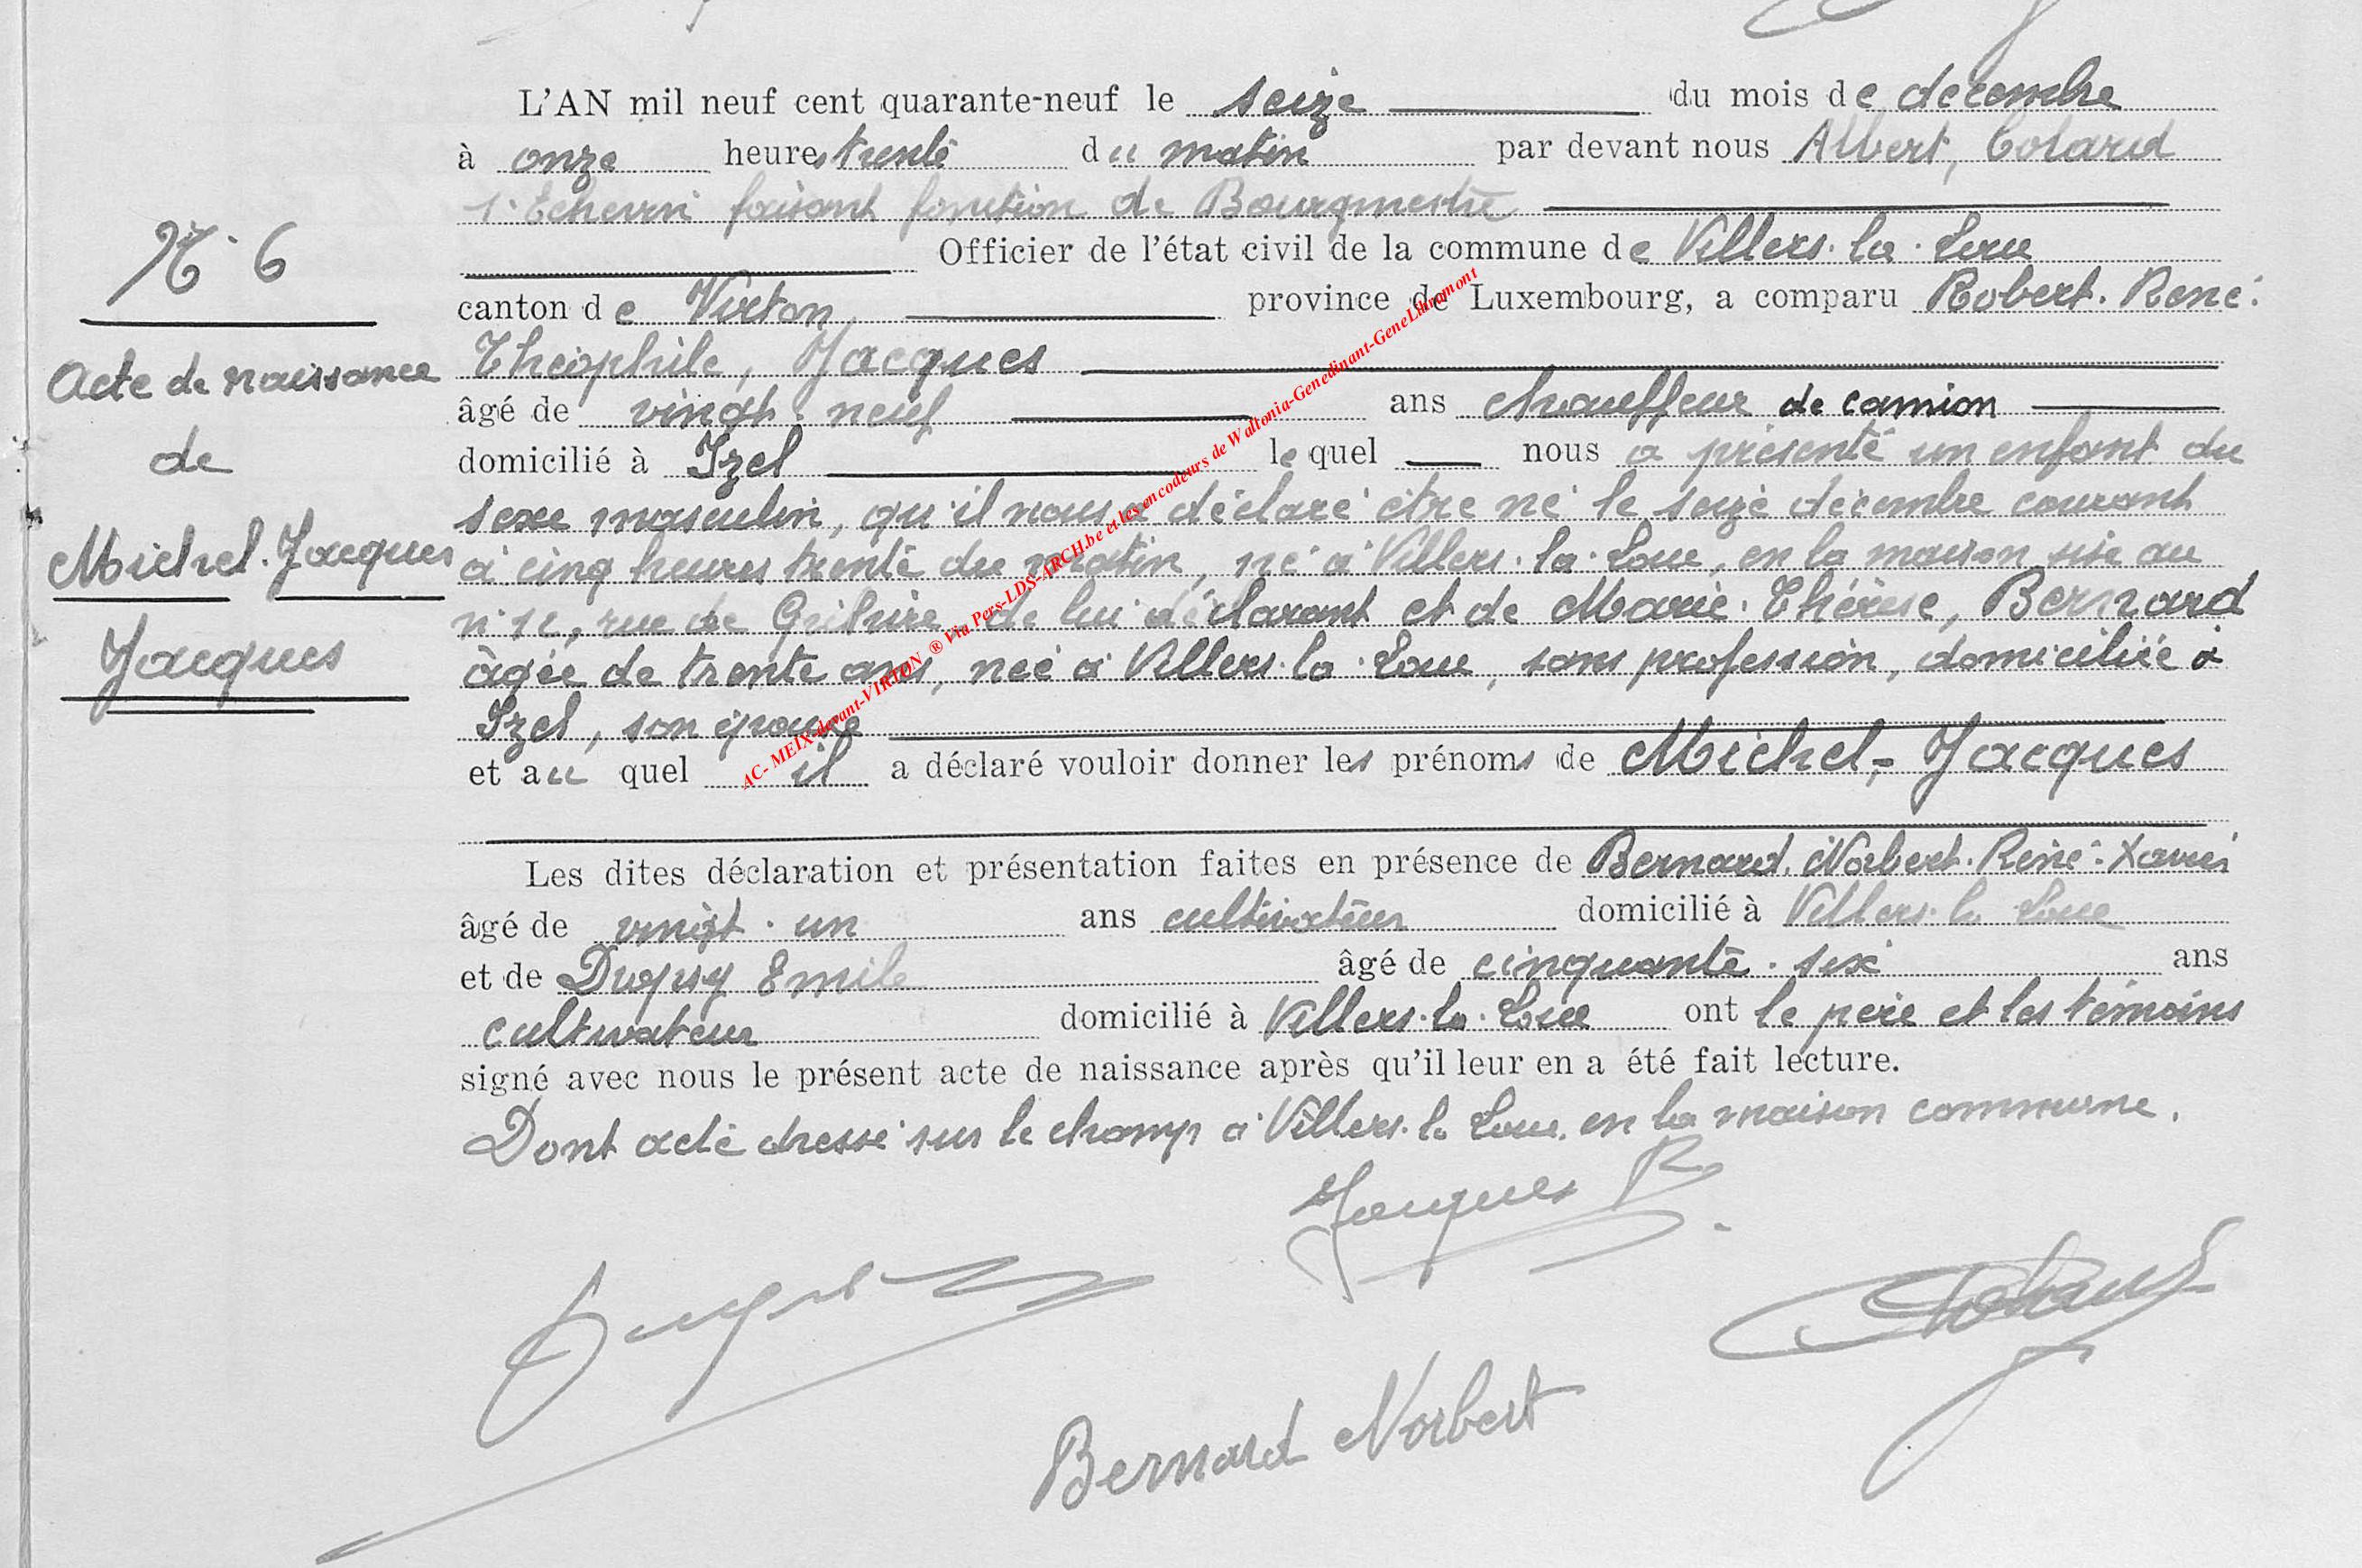 L'AN mil neuf cent quarante-neuf le seize du mois de décembre
à onze heures trente du matin par devant nous Albert, Colard
1r Echevin faisant fonction de Bourgmestre
N° 6
Officier de l'état civil de la commune de Villers-la-Loue
canton de Virton, province de Luxembourg, a comparu Robert-René-
Théophile, Jacques
Acte de naissance
âgé de vingt-neuf ans chauffeur de camion
de
domicilié à Izel lequel nous a présenté un enfant du
sexe masculin, qu'il nous a déclaré être né le seize décembre courant
Michel-Jacques
à cinq heures trente du matin, né à Villers-la-Loue, en la maison sise au
rue de de lui déclarant et de Marie-Thérèse, Bernard
Jacques
âgée de trente ans, née à Villers-la-Loue, sans profession, domiciliée à
Izel, son épouse
et auquel il a déclaré vouloir donner les prénoms de Michel-Jacques
Les dites déclaration et présentation faites en présence de Bernard, Norbert-René-Xavier
âgé de vingt-un ans cultivateur domicilié à Villers-la-Loue
et de Dupuy Emile âgé de cinquante-six ans
cultivateur domicilié à Villers-la-Loue ont le père et les témoins
signé avec nous le présent acte de naissance après qu'il leur en a été fait lecture.
Dont acte dressé sur le champ à Villers-la-Loue, en la maison commune.
Jacques R
Colard
Bernard Norbert
AC- MEIX-devant-VIRTON ® Via Pers-LDS-ARCH.be et les encodeurs de Waltonia-Genedinant-GeneLibramont